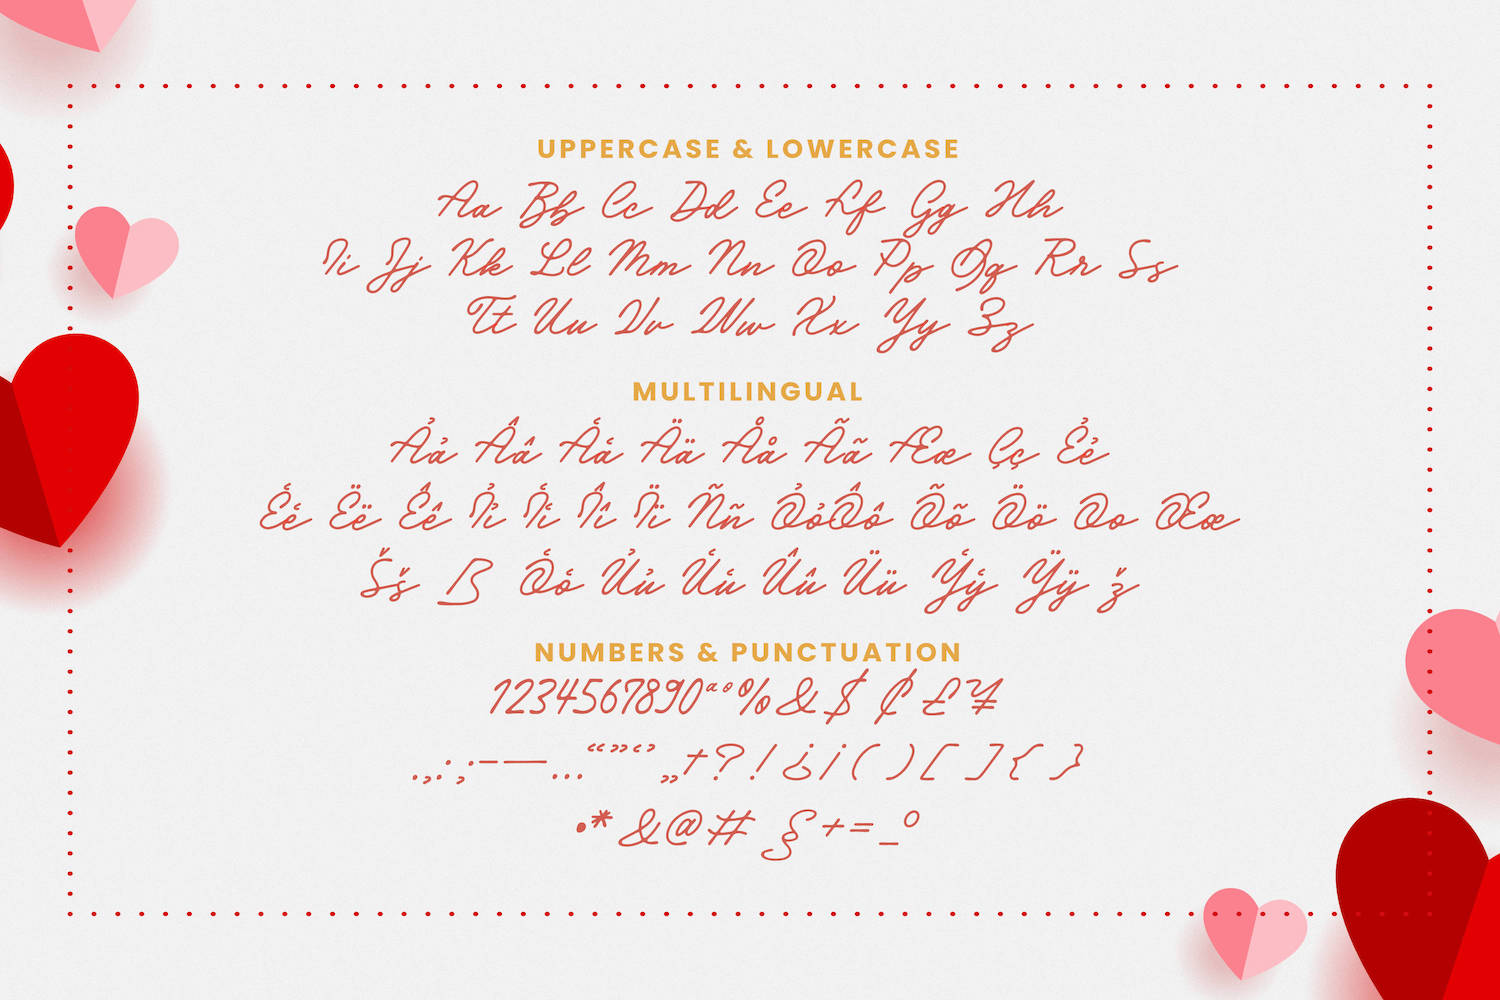 UPPERCASE & LOWERCASE
Aa Bb Cc Dd Ee Ff Gg Hh
Ii Jj Kk Ll Mm Nn Oo Pp Qq Rr Ss
Tt Uu Vv Ww Xx Yy Zz
MULTILINGUAL
Ảả Ââ Áá Ää Åå Ãã Ææ Çç Ẻẻ
Éé Ëë Êê Ỉỉ Íí Îî Ïï Ññ ỎỏÔô Õõ Öö Oo Œœ
Šš ß Óó Ủủ Úú Ûû Üü Ýý Ÿÿ ž
NUMBERS & PUNCTUATION
1234567890ªº%&$ ¢ £¥
.,:;-—…“”‘’„†?!¿¡( )[ ]{ }
•*&@# §+=_°